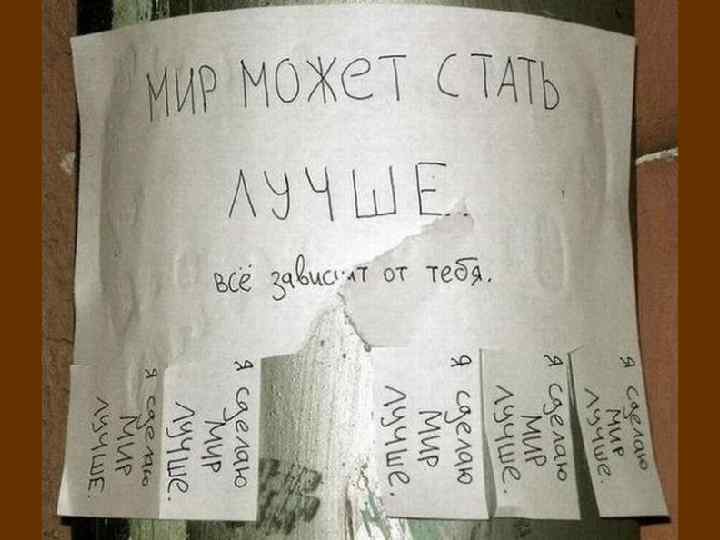 МИР МОЖЕТ СТАТЬ
ЛУЧШЕ..
всё зависит от тебя.
я сделаю
МИР
ЛУЧШЕ.
я сделаю
МИР
лучше.
я сделаю
МИР
лучше.
я сделаю
МИР
лучше.
я сделаю
МИР
лучше.